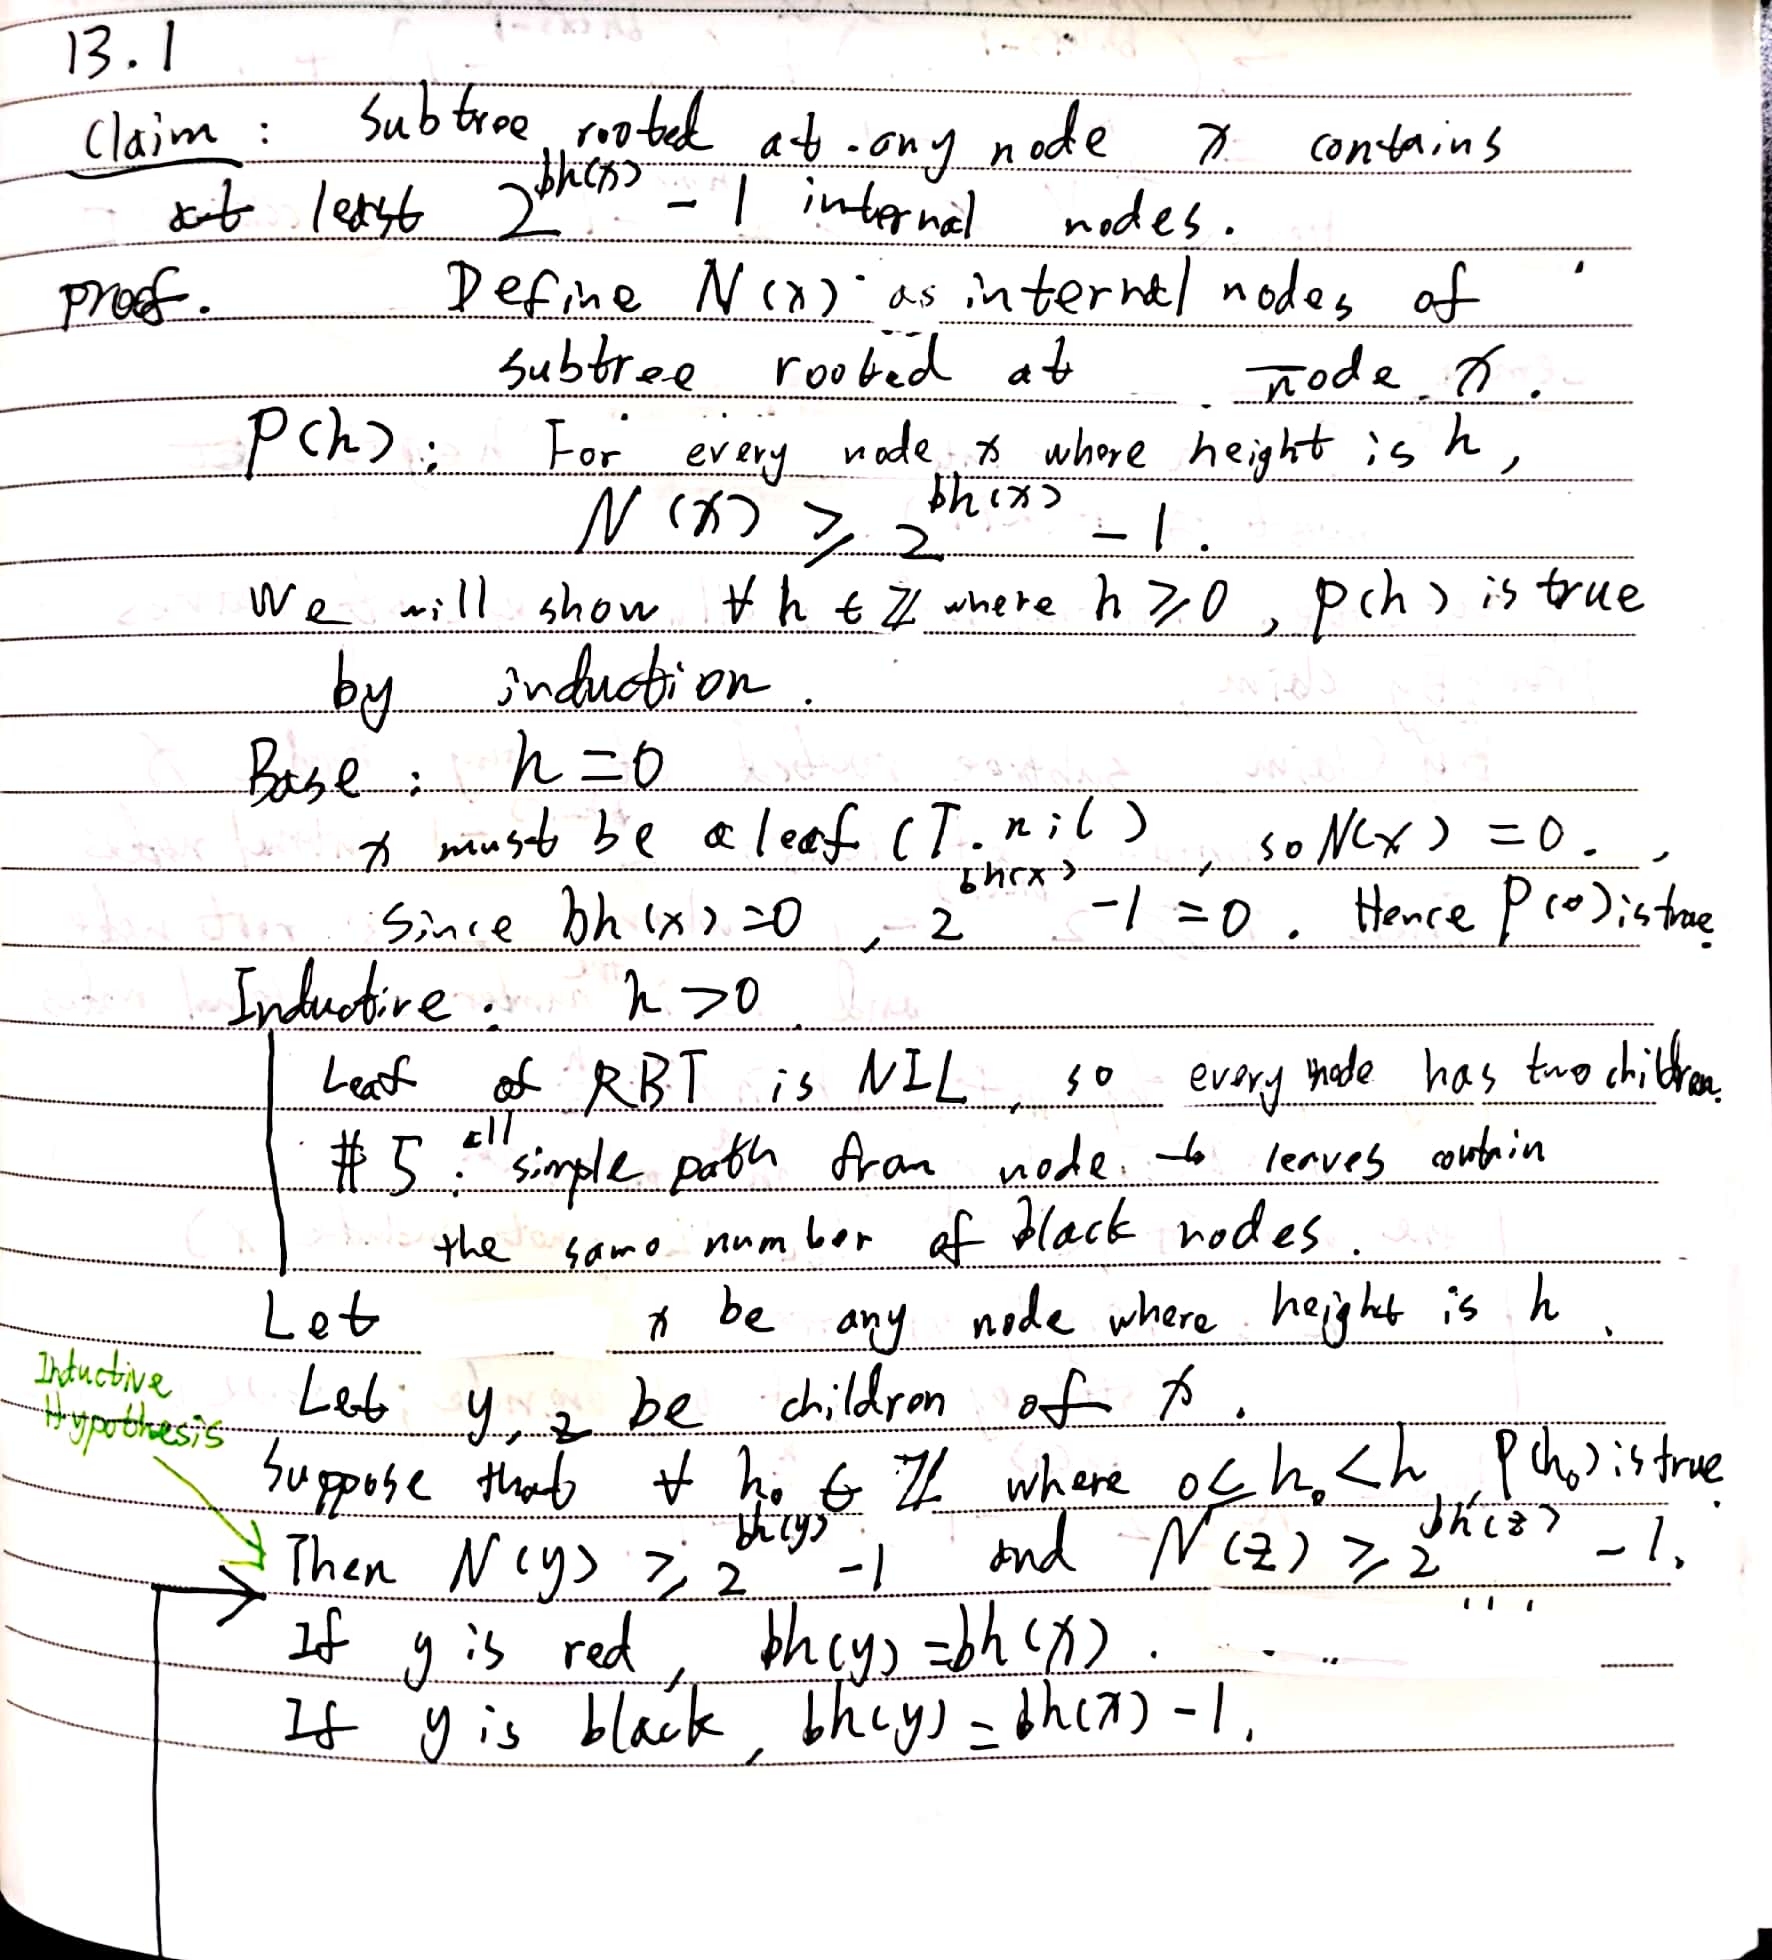 13.1
Claim : Subtree rooted at any node x contains
at least 2^bh(x) - 1 internal nodes.
proof. Define N(x) as internal nodes of
subtree rooted at node x.
P(h) : For every node x where height is h,
N(x) ≥ 2^bh(x) - 1.
We will show ∀ h ∈ ℤ where h ≥ 0, P(h) is true
by induction.
Base : h = 0
x must be a leaf (T.nil), so N(x) = 0.
Since bh(x) = 0, 2^bh(x) - 1 = 0. Hence P(0) is true.
Inductive : h > 0
Leaf of RBT is NIL, so every node has two children.
#5 : all simple path from node to leaves contain
the same number of black nodes.
Let x be any node where height is h.
Let y, z be children of x.
Inductive
Hypothesis
Suppose that ∀ h₀ ∈ ℤ where 0 ≤ h₀ < h, P(h₀) is true.
Then N(y) ≥ 2^bh(y) - 1 and N(z) ≥ 2^bh(z) - 1.
If y is red, bh(y) = bh(x).
If y is black, bh(y) = bh(x) - 1.